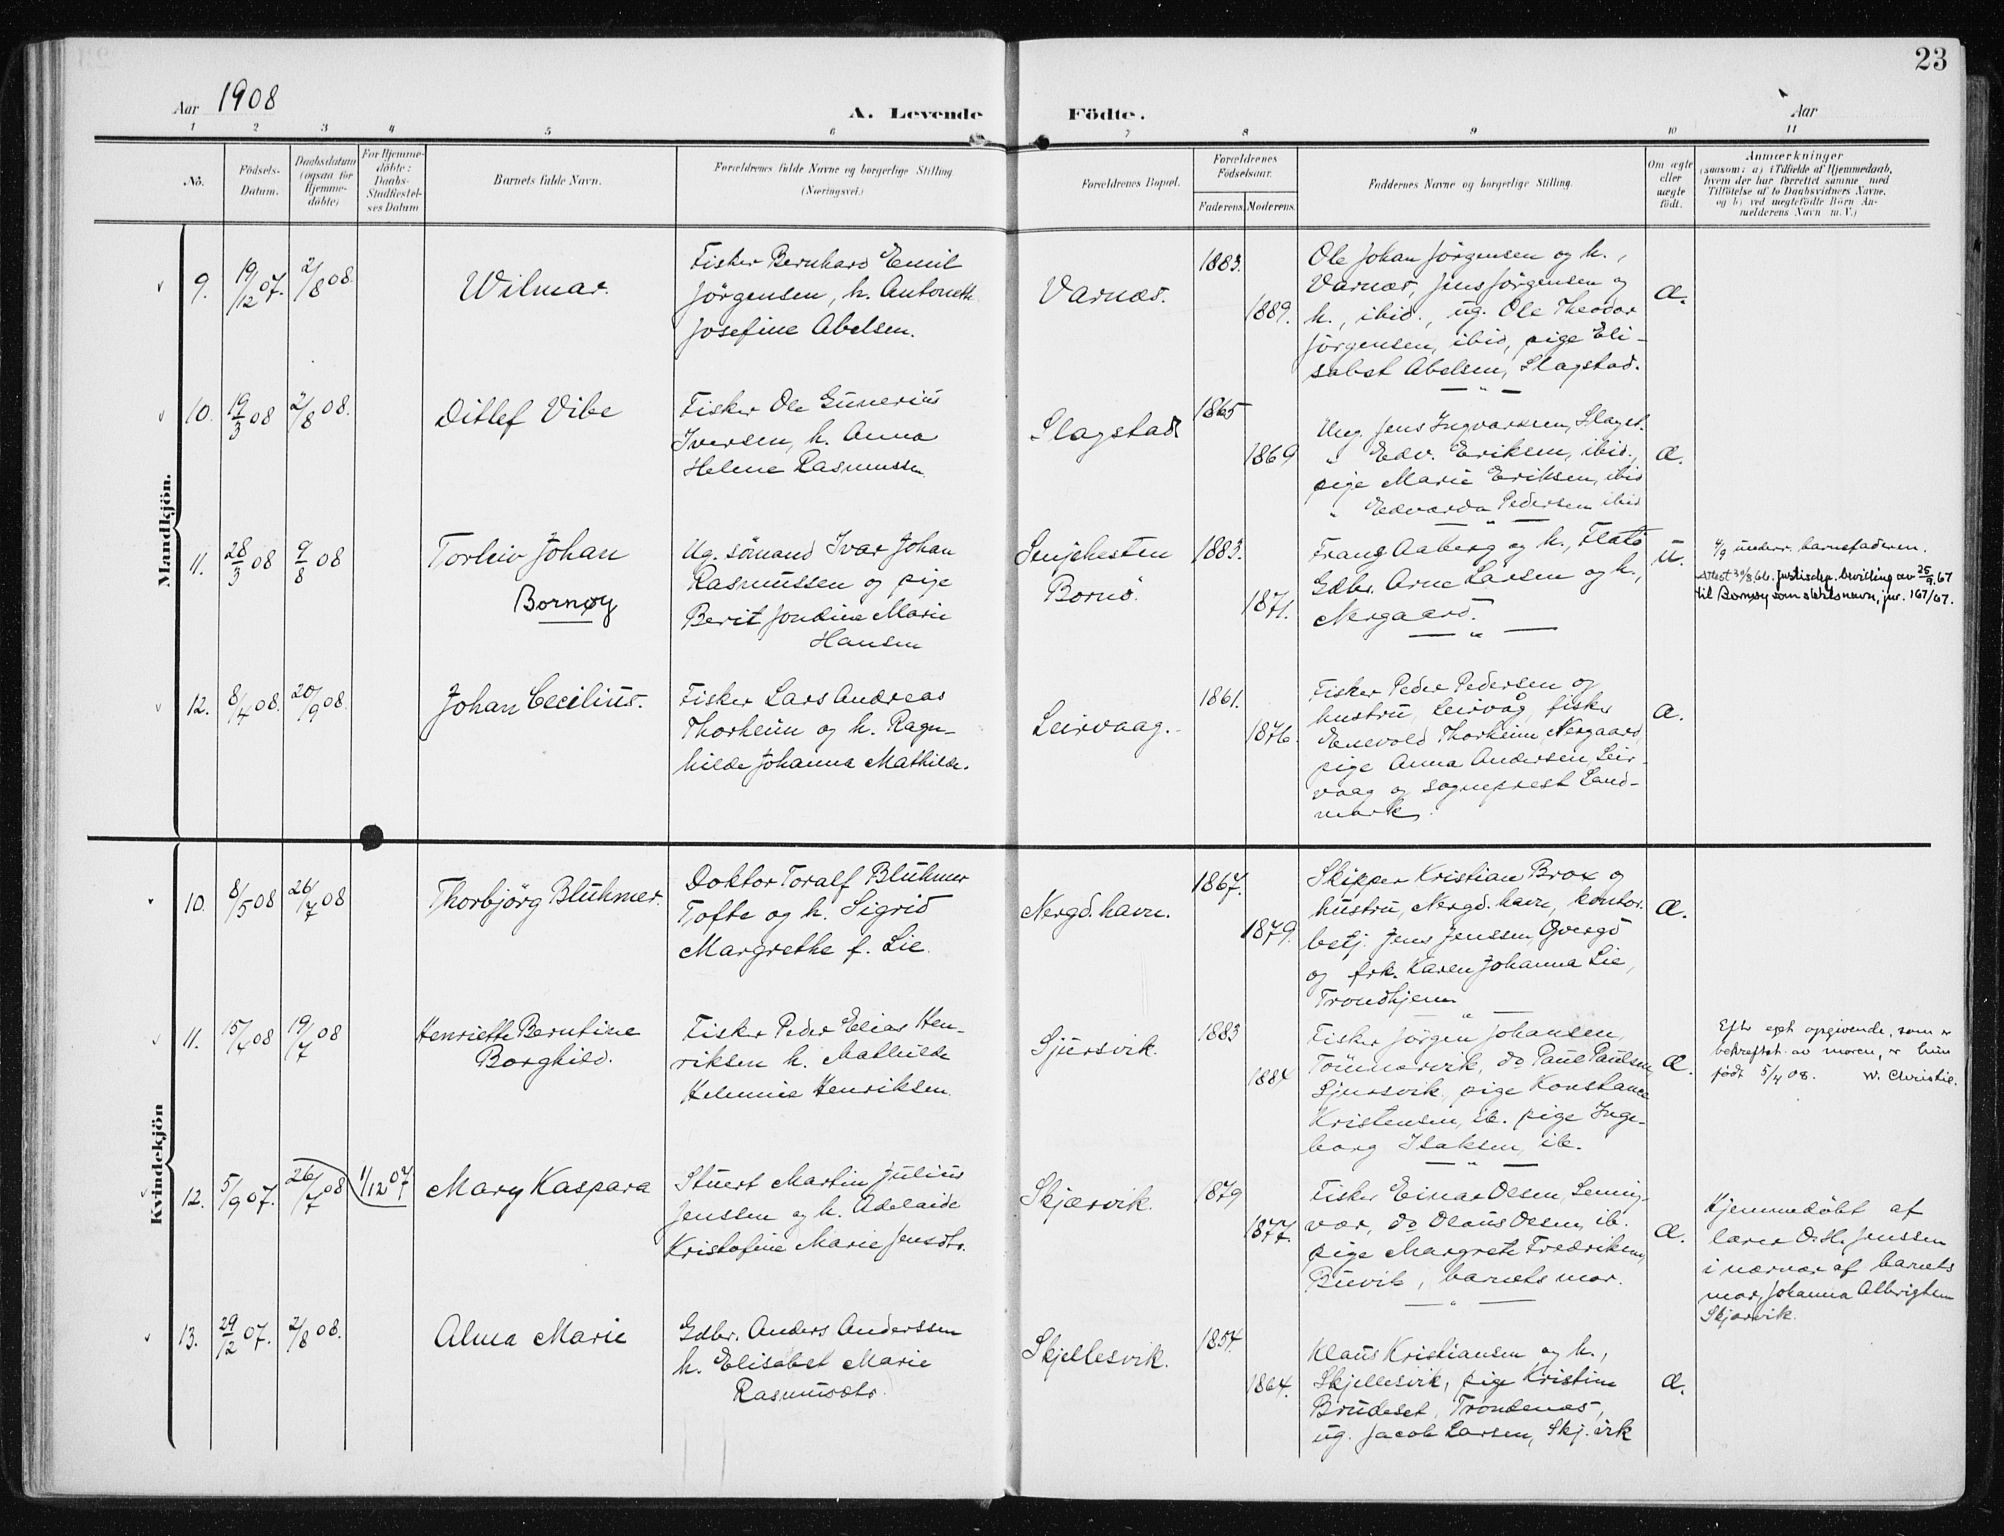 23
Aar 1908
A. Levende Födte.
Aar
1 2 3 4 5 6 7 8 9 10 11
No.
Födsels-
Datum.
Daabsdatum
(ogsaa for
Hjemme-
döbte)
For Hjemme-
döbte:
Daabs-
Stadfæstel-
ses Datum
Barnets fulde Navn.
Forældrenes fulde Navne og borgerlige Stilling
(Næringsvei.)
Forældrenes Bopæl.
Forældrenes
Födselsaar.
Faderens.
Moderens.
Faddernes Navne og borgerlige Stilling.
Om ægte
eller
uægte
födt.
Anmærkninger
(saasom: a) i Tilfælde af Hjemmedaab,
hvem der har forrettet samme med
Tilföielse af to Daabsvidners Navne,
og b) ved uægtefödte Börn An-
melderens Navn m. V.)
Mandkjön.
9.
19/12 07.
2/8 08.
Wilmar.
Fisker Bernhard Emil
Jörgensen, h. Antoneth
Josefine Abelsen.
Varnæs.
1883.
1889.
Ole Johan Jörgensen og h.,
Varnæs, Jens Jörgensen og
h., ibid., ug. Ole Theodor
Jörgensen, ibid, pige Eli-
sabet Abelsen, Slagstad.
æ.
10.
19/3 08
2/8 08.
Ditlef Vibe
Fisker Ole Gunerius
Iversen, h. Anna
Helene Rasmussen
Slagstad
1865
1869
Ung. Jens Ingvartsen, Slagst.
" Edv. Eriksen, ibid.,
pige Marie Eriksen, ibid
" Edvarda Pedersen ibid
æ.
11.
28/3 08
9/8 08
Torleiv Johan
Bornøy
Ug. sömand Ivar Johan
Rasmussen og pige
Berit Jondine Marie
Hansen
Senjehesten
Bornö.
1883.
1871.
Franz Aaberg og h., Flatö
Gdbr. Arne Larsen og h.,
Nergaard.
u.
4/9 underr. barnefaderen.
Attest 30/8 66. Justisdep. bevilling av 25/9.67
til Bornøy som slektsnavn, jnr. 167/67.
12.
8/4 08.
20/9 08.
Johan Cecilius.
Fisker Lars Andreas
Thorheim og h. Ragn-
hilde Johanna Mathilde.
Leirvaag.
1861.
1876.
Fisker Peder Pedersen og
hustru, Leirvåg, fisker
Enevold Thorheim, Nergaard,
pige Anna Andersen, Leir-
vaag og sogneprest Land-
mark.
æ.
Kvindekjön
10.
8/5 08
26/7 08
Thorbjörg Blühmer.
Doktor Toralf Blühmer
Tofte og h. Sigrid
Margrethe f. Lie.
Nergd.havn.
1867.
1879.
Skipper Kristian Brox og
hustru, Nergd.havn, kontor-
betj. Jens Jenssen, Gversgö
og frk. Karen Johanna Lie,
Trondhjem
æ.
11.
15/4 08
19/7 08
Henriette Berntine
Borghild.
Fisker Peder Elias Hen-
riksen h. Mathilde
Helmine Henriksen.
Sjursvik.
1883
1884
Fisker Jörgen Johansen,
Tömmervik, do Paul Paulsen,
Sjursvik, pige Konstance
Kristensen, ib. pige Inge-
borg Isaksen, ib.
æ.
Efter eget opgivende, som er
bekreftet av moren, er hun
født 5/4 08. W. Christie.
12.
5/9 07.
26/7 08
1/12 07
Mary Kaspara
Stuert Martin Julius
Jenssen og h. Adelaide
Kristofine Marie Jensdtr.
Skjærvik.
1879
1877.
Fisker Einar Olsen, Lemmig-
vær, do Olaus Olsen, ib.
pige Margrete Fredriksen,
Buvik, barnets mor.
æ.
Hjemmedöbt af
lærer O. H. Jenssen
i nærvær af barnets
mor, Johanna Albrigtsen
Skjærvik.
13.
29/12 07.
2/8 08.
Alma Marie
Gdbr. Anders Anderssen
h. Elisabet Marie
Rasmusdtr.
Skjellesvik.
1854.
1864.
Klaus Kristiansen og h.,
Skjellesvik, pige Kristine
Brudeset, Trondenæs,
ug. Jacob Larsen, Skj.vik
æ.